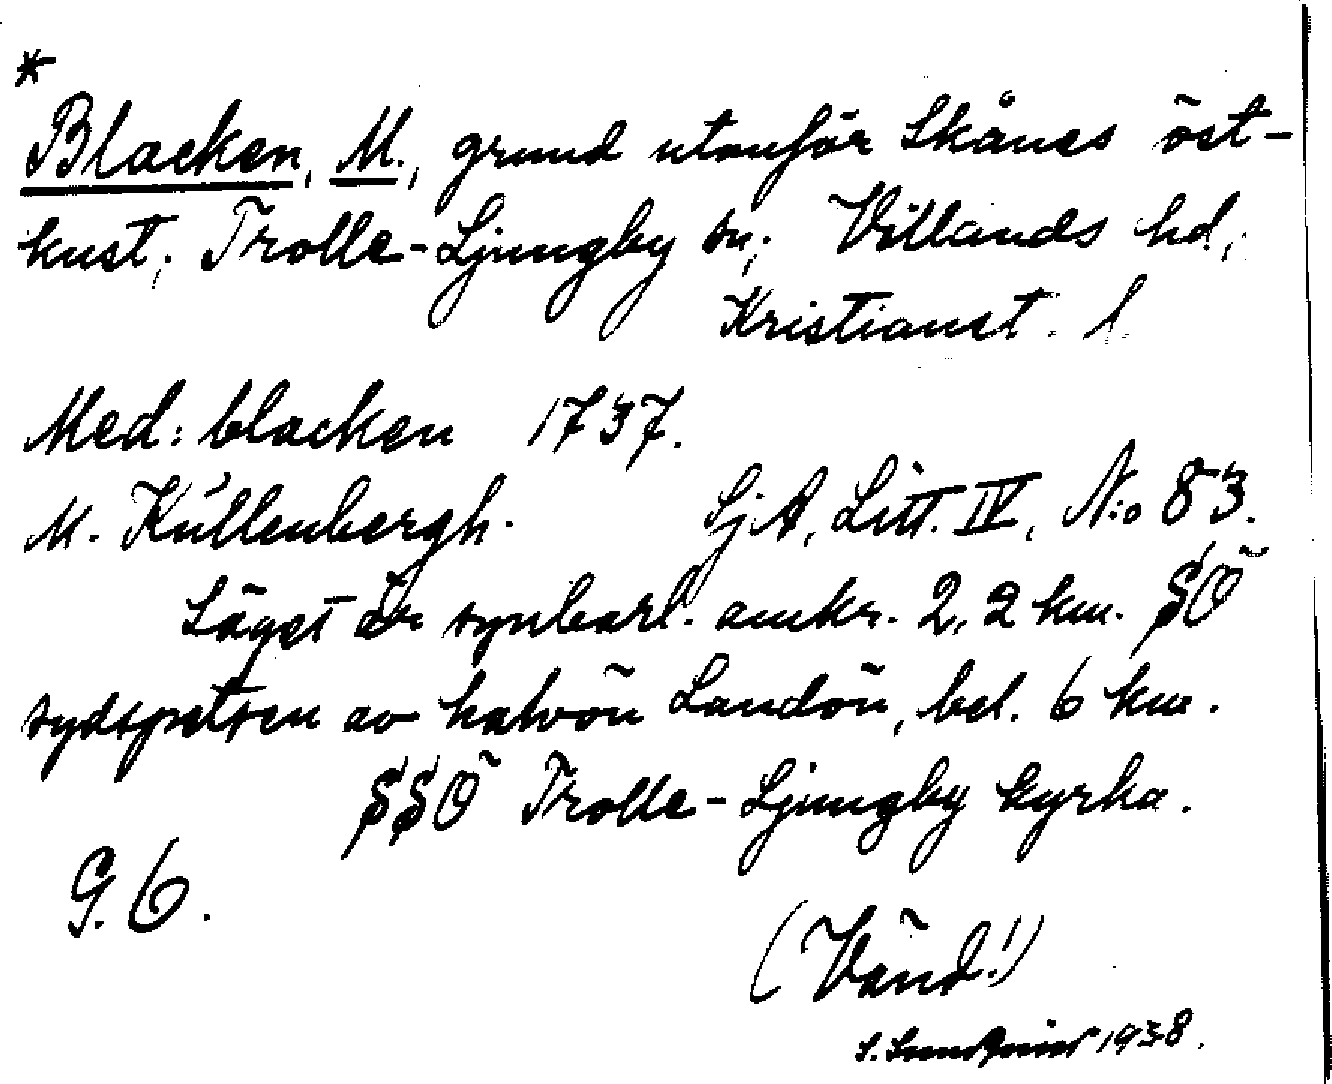 *
Blacken, M., grund utanför Skånes öst-
kust, Trolle-Ljungby sn, Villands hd,
Kristianst. l.
Med: blacken 1737.
M. Küllenbergh. SjA, Litt. IV, N:o 83.
Läget är synbarl. omkr. 2,2 km. SÖ
sydspetsen av halvön Landön, bel. 6 km.
SSÖ Trolle-Ljungby kyrka.
G. 6.
(Vänd!)
S. 1938.